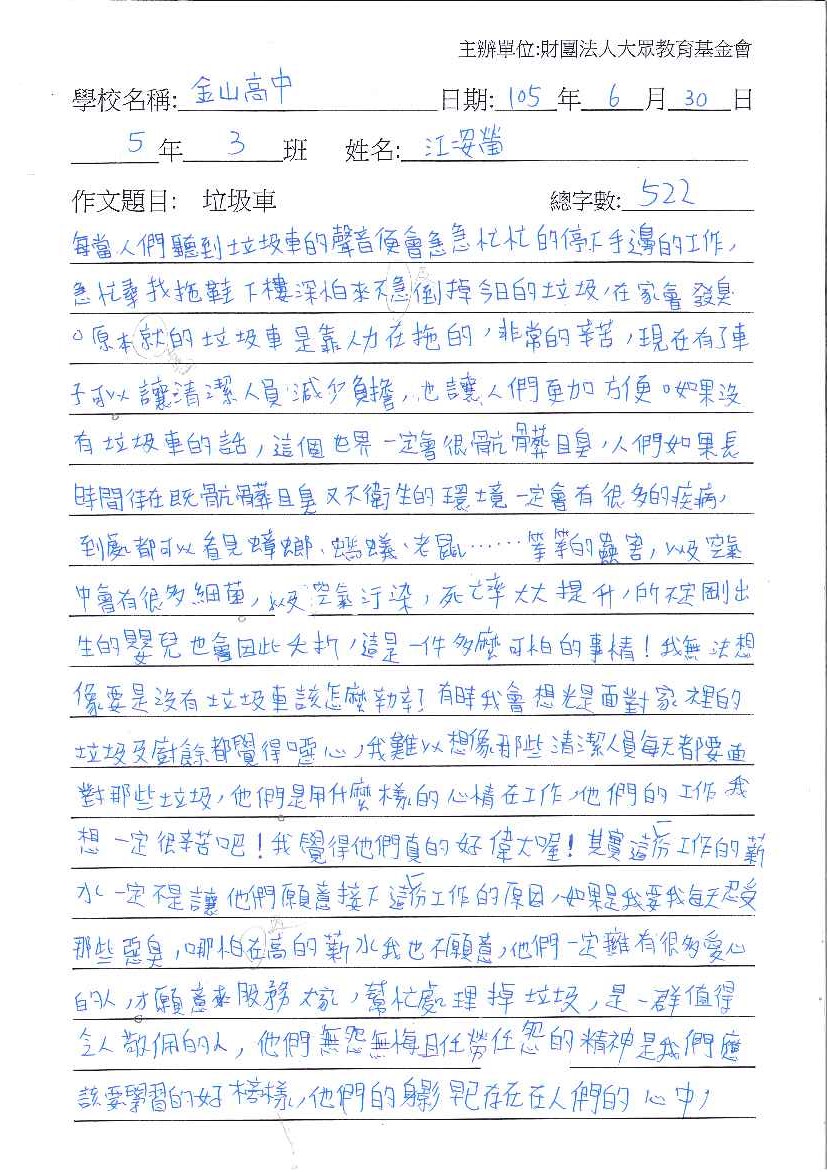 主辦單位:財團法人大眾教育基金會
學校名稱: 金山高中 日期: 105 年 6 月 30 日
5 年 3 班 姓名: 江姿瑩
作文題目: 垃圾車 總字數: 522
每當人們聽到垃圾車的聲音便會急急忙忙的停下手邊的工作,
急忙穿拖鞋下樓深怕來不急倒掉今日的垃圾,在家會發臭
。原本就的垃圾車是靠人力在拖的,非常的辛苦,現在有了車
子可以讓清潔人員減少負擔,也讓人們更加方便。如果沒
有垃圾車的話,這個世界一定會很骯髒且臭,人們如果長
時間待在既骯髒且臭又不衛生的環境一定會有很多的疾病,
到處都可以看見蟑螂、螞蟻、老鼠……等等的蟲害,以及空氣
中會有很多細菌,以及空氣汙染,死亡率大大提升,所定剛出
生的嬰兒也會因此夭折,這是一件多麼可怕的事情!我無法想
像要是沒有垃圾車該怎麼辦 有時我會想光是面對家裡的
垃圾及廚餘都覺得噁心,我難以想像那些清潔人員每天都要面
對那些垃圾,他們是用什麼樣的心情在工作,他們的工作我
想一定很辛苦吧!我覺得他們真的好偉大喔!其實這份工作的薪
水一定不是讓他們願意接下這份工作的原因,如果是我要我每天忍受
那些惡臭,哪怕在高的薪水我也不願意,他們一定擁有很多愛心
的人,才願意來服務大家,幫忙處理掉垃圾,是一群值得
令人敬佩的人,他們無怨無悔且任勞任怨的精神是我們應
該要學習的好榜樣,他們的身影早已存在在人們的心中,